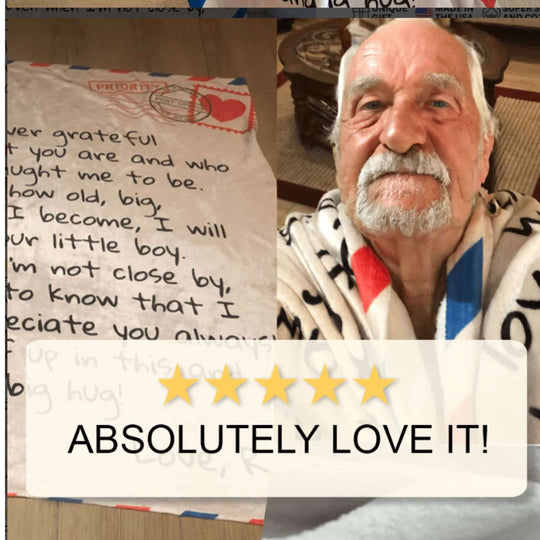 even when I'm not close by,
and a hug!
UNIQUE
GIFT
MADE IN
THE USA
SUPER S
AND CO
PRIORITY
ver grateful
t you are and who
ught me to be.
how old, big,
I become, I will
ur little boy.
'm not close by,
to know that I
eciate you always
f up in this and
big hug!
Love, R
ABSOLUTELY LOVE IT!